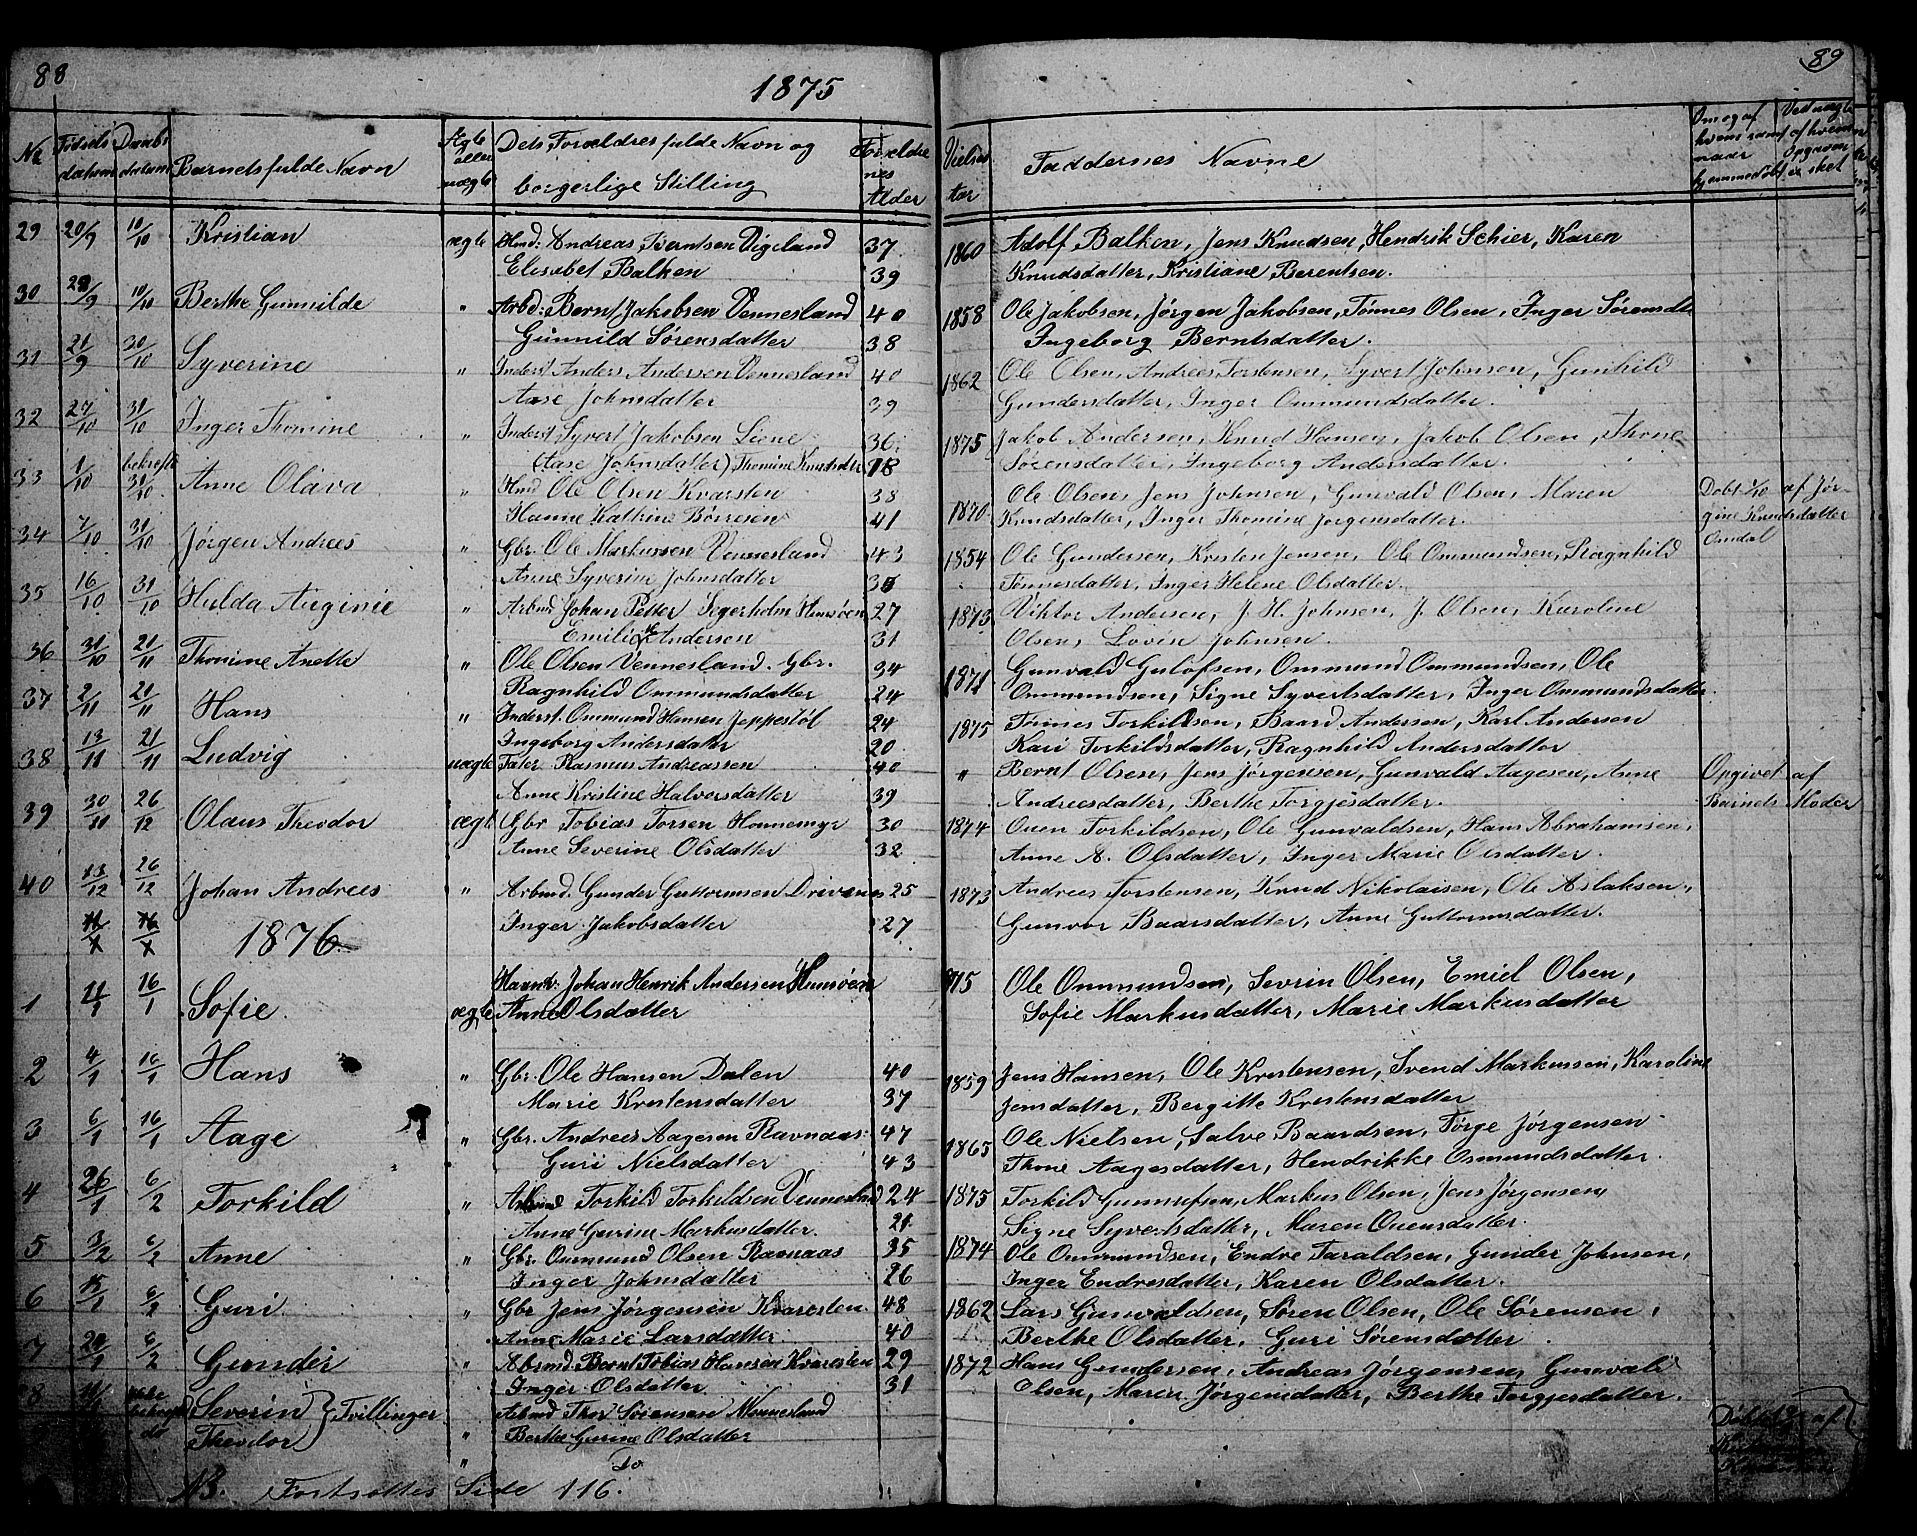 88
1875
89
No | Fødsels datum | Daabs datum | Barnets fulde Navn | Ægte eller uægte | Dets Forældres fulde Navn og borgerlige Stilling | Forældrenes Alder | Vielses Aar | Faddernes Navne | Om og af hvem samt naar hjemmedøbt | Ved uægte af hvem Opgaven er sket
29 20/9 10/10 Kristian ægte Hmd: Andreas Berntsen Vigeland 37 1860 Adolf Balken, Jens Knudsen, Hendrik Schier, Karen
Elisabet Balken 39 Knudsdatter, Kristiane Berentsen.
30 29/9 10/10 Berthe Gunnilde " Arbd: Bernt Jakobsen Vennesland 40 1858 Ole Jakobsen, Jørgen Jakobsen, Tønnes Olsen, Inger Sørensdt
Gunnild Sørensdatter 38 Ingeborg Berntsdatter.
31 21/9 30/10 Syverine " Inderst Anders Andersen Vennesland 40 1862 Ole Olsen, Andrees Torstensen, Syvert Johnsen, Gunhild
Aase Johnsdatter 39 Gundersdatter, Inger Ommundsdatter.
32 27/10 31/10 Inger Thomine " Inderst Syvert Jakobsen Liene 36 1875 Jakob Andersen, Knud Hansen, Jakob Olsen, Thone
(Aase Johnsdatter) Thomine 18 Sørensdatter, Ingeborg Andersdatter.
33 1/10 bekræft 31/10 Anne Olava " Hmd Ole Olsen Kvarsten 38 1870 Ole Olsen, Jens Johnsen, Gunvald Olsen, Maren Døbt 3/10 af Jør-
Hanne Kathrine Børresen 41 Knudsdatter, Inger Thomine Jørgensdatter. gine Knudsdatter
34 7/10 31/10 Jørgen Andrees " Gbr. Ole Markussen Vennesland 43 1854 Ole Gundersen, Kristen Jensen, Ole Ommundsen, Ragnhild Omdal
Anne Syverine Johnsdatter Tønnesdatter, Inger Helene Olsdatter.
35 16/10 31/10 Hulda Auginie " Arbmd Johan Petter Segerholm Hunsøen 27 1873 Viktor Andersen, J. H. Johnsen, J. Olsen, Karoline
Emilie Andersen 31 Olsen, Lovise Johnsen.
36 31/10 21/11 Thomine Anette " Ole Olsen Vennesland. Gbr. 34 1871 Gunvald Gulofsen, Ommund Ommundsen, Ole
Ragnhild Ommundsdatter 24 Ommundsen, Signe Syvertsdatter, Inger Ommundsdatter.
37 2/11 21/11 Hans " Inderst. Ommund Hansen Jeppestøl 24 1875 Tønnes Torkildsen, Baard Andersen, Karl Andersen
Ingeborg Andersdatter 20 Kari Torkildsdatter, Ragnhild Andersdatter
38 13/11 21/11 Ludvig uægte Fater Rasmus Andreassen 40 " Bernt Olsen, Jens Jørgensen, Gunvald Aagesen, Anne Opgivet af
Anne Kristine Halversdatter 39 Andreesdatter, Berthe Torgjesdatter. Barnets Moder
39 30/11 26/12 Olaus Theodor ægte Gbr Tobias Torsen Honnemyr 30 1874 Ouen Torkildsen, Ole Gunvaldsen, Hans Abrahamsen,
Anne Severine Olsdatter 32 Anne A. Olsdatter, Inger Marie Olsdatter.
40 13/12 26/12 Johan Andrees " Arbmd. Gunder Guttormsen Drivenes 25 1873 Andrees Torstensen, Knud Nikolaisen, Ole Aslaksen,
Inger Jakobsdatter 27 Gunvor Baarsdatter, Anne Guttormsdatter.
1876
1 16/1 Sofie. ægte Haandv: Johan Henrik Andersen Hunsøen Ole Ommundsen, Sevrin Olsen, Emiel Olsen,
Anne Olsdatter Sofie Markusdatter, Marie Markusdatter
2 4/1 16/1 Hans " Gbr. Ole Hansen Dalen 40 1859 Jens Hansen, Ole Kristensen, Svend Markussen, Karoline
Marie Kristensdatter 37 Jensdatter, Bergitte Kristensdatter
3 6/1 16/1 Aage " Gbr. Andrees Aagesen Ravnaas 47 1865 Ole Nielsen, Salve Baardsen, Tørge Jørgensen
Guri Nielsdatter 43 Thone Aagesdatter, Hendrikke Osmundsdatter.
4 26/1 6/2 Torkild " Arbmd Torkild Torkildsen Vennesland 24 1875 Torkild Gunnufsen, Markus Olsen, Jens Jørgensen,
Anne Gurine Markusdatter. 21 Signe Syvertsdatter, Maren Ouensdatter.
5 3/2 6/2 Anne " Gbr. Ommund Olsen Ravnaas 35 1874 Ole Ommundsen, Endre Taraldsen, Gunder Johnsen,
Inger Johnsdatter 26 Inger Endresdatter, Karen Olsdatter.
6 15/1 6/2 Guri " Gbr Jens Jørgensen Kvarsten 48 1862 Lars Gunvaldsen, Søren Olsen, Ole Sørensen,
Anne Marie Larsdatter 40 Berthe Olsdatter, Guri Sørensdatter.
7 20/1 6/2 Gunder " Abrmd. Bernt Tobias Hansen Kvarsten 29 1872 Hans Gundersen, Andreas Jørgensen, Gunvald
Inger Olsdatter 31 Olsen, Maren Jørgensdatter, Berthe Torgjesdatter.
8 Severin } Tvillinger Arbmd Thor Sørensen Vennesland
Theodor " Berthe Gurine Olsdatter Døbt af
" Do
NB. Fortsættes Side 116.